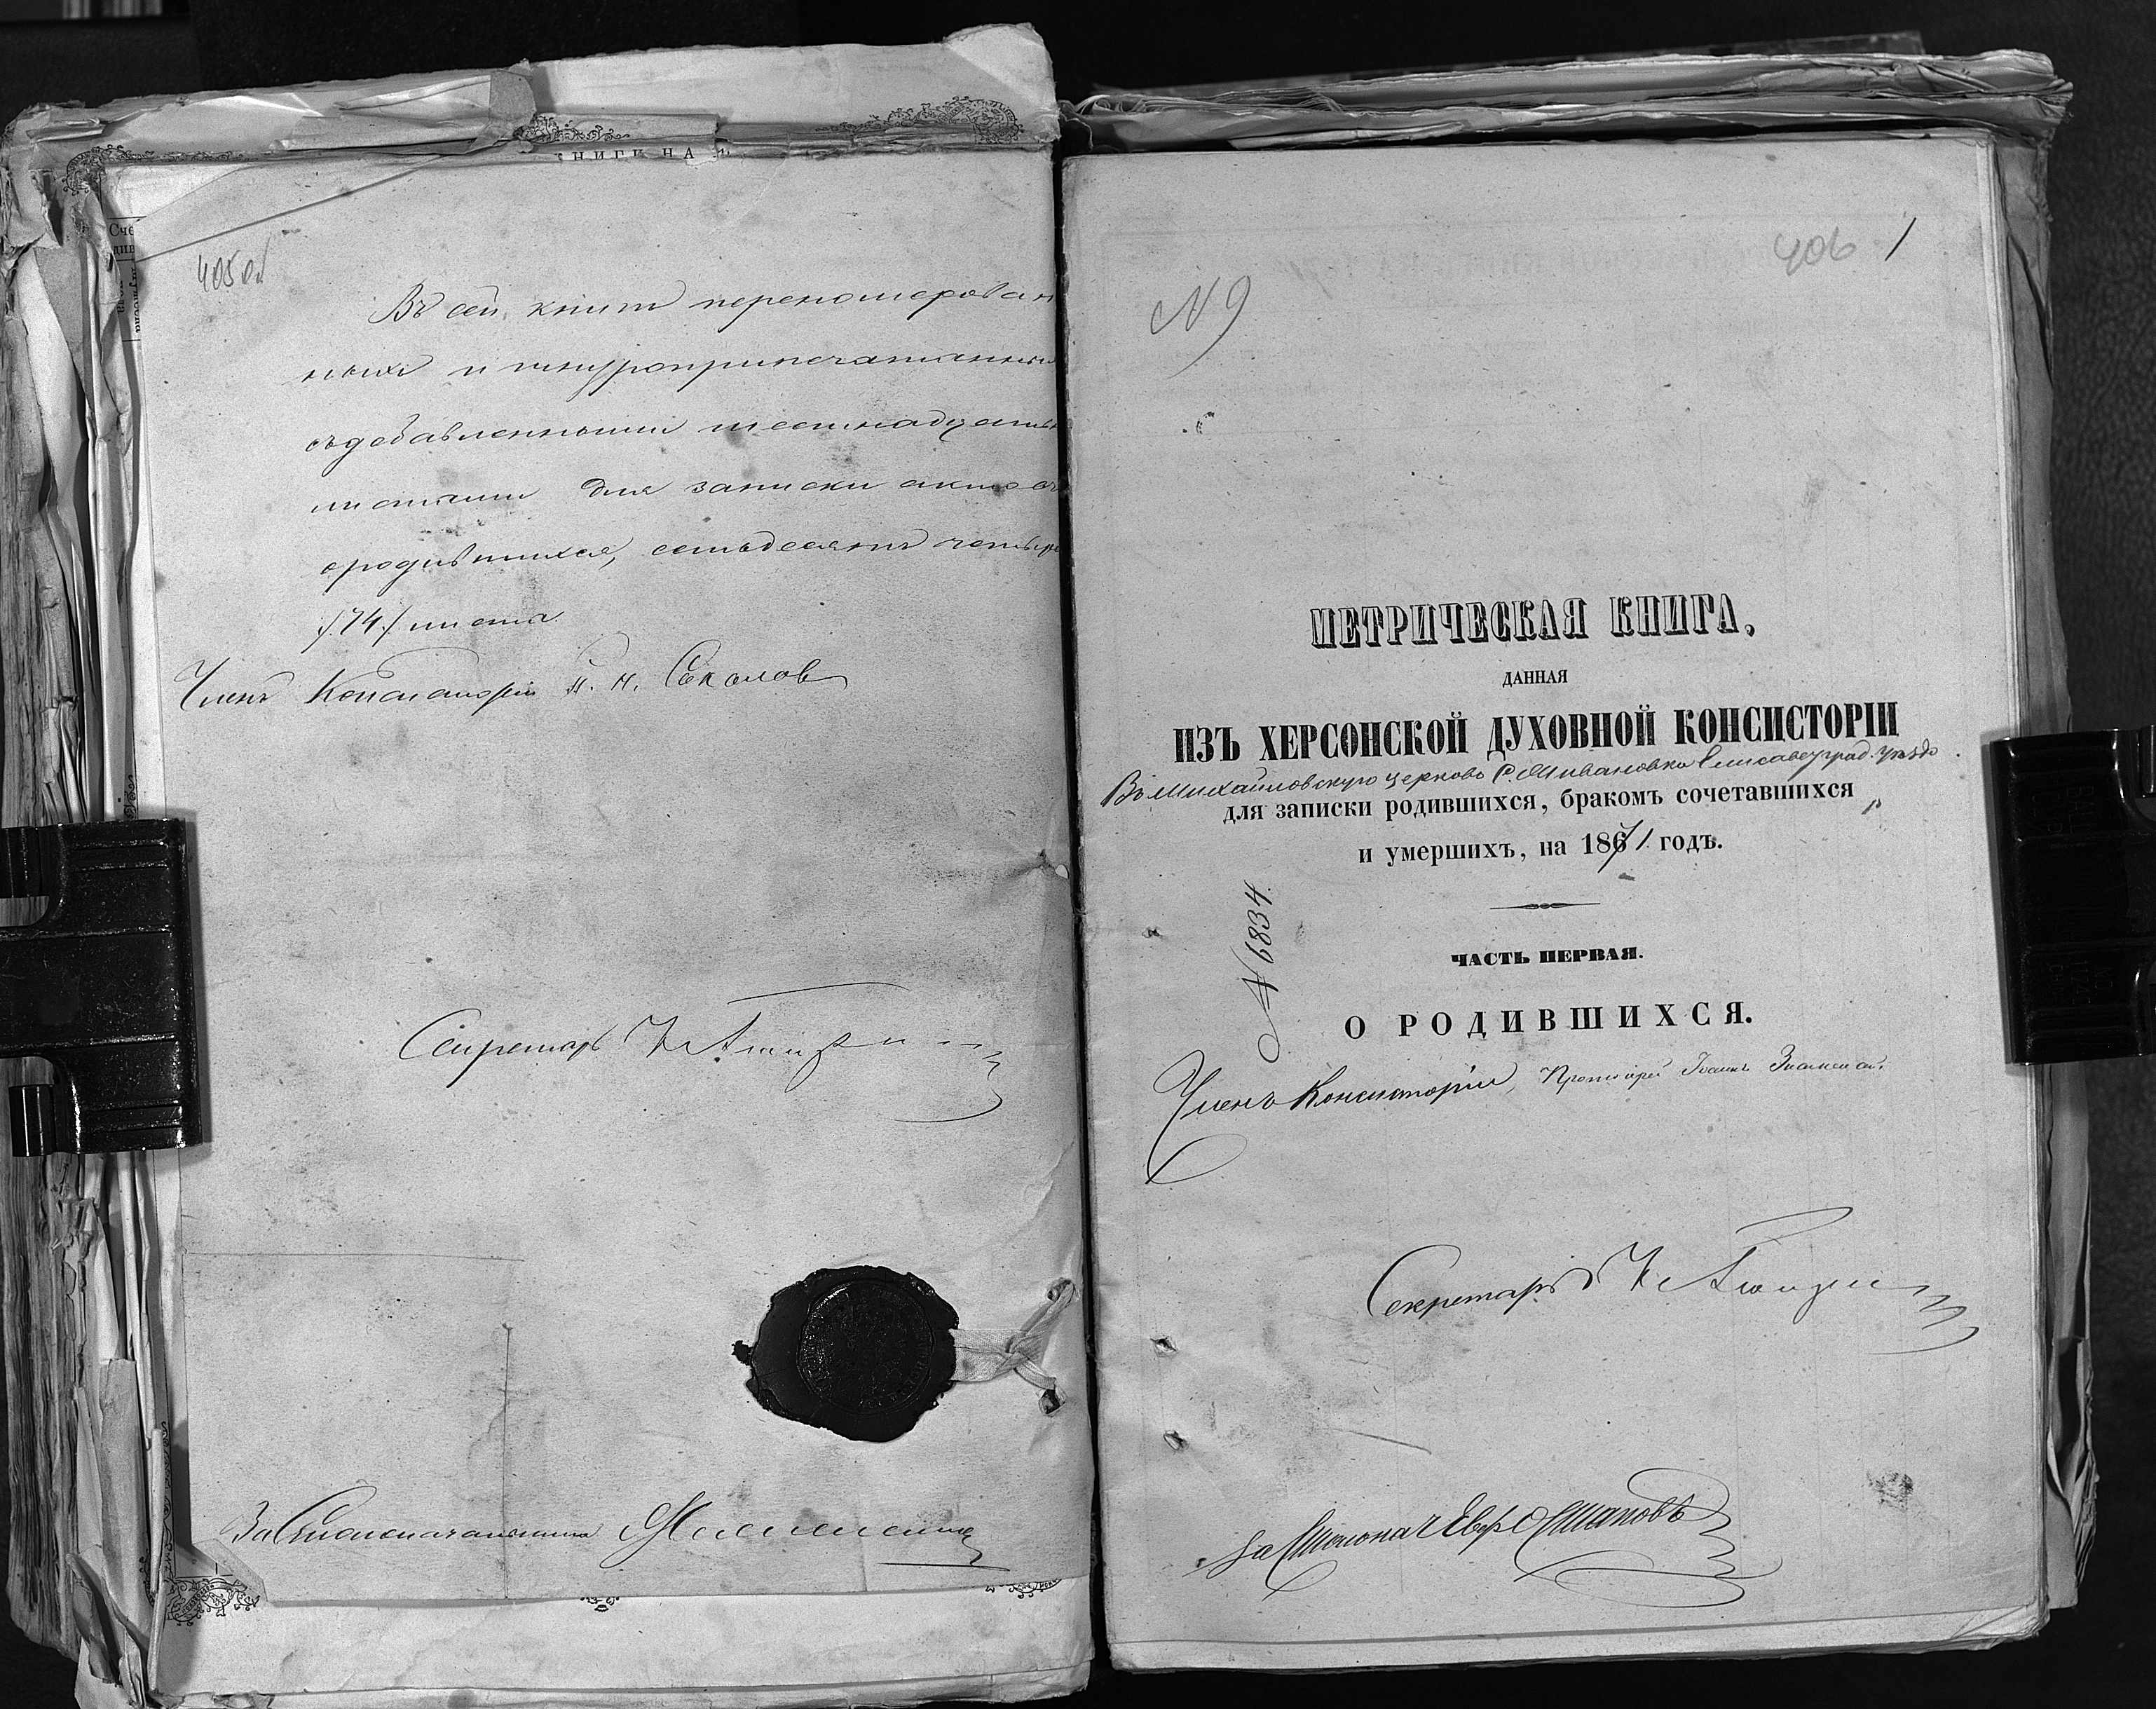 НИГИ НА
405об
Въ сей книгѣ переномерован
ныхъ и шнуроприпечатанны
съ добавленными шестнадцатью
листами для записки актовъ
о родившихся, семьдесятъ четыре
/74/ листа.
Членъ Консисторіи Соколов
Секретарь
За Столоначальника
406 1
N 9
МЕТРИЧЕСКАЯ КНИГА,
ДАННАЯ
ИЗЪ ХЕРСОНСКОЙ ДУХОВНОЙ КОНСИСТОРІИ
Въ Михайловскую церковь С. Елисаветград. уѣзда
для записки родившихся, бракомъ сочетавшихся
и умершихъ, на 1871 годъ.
№ 6834.
ЧАСТЬ ПЕРВАЯ.
О РОДИВШИХСЯ.
Членъ Консисторіи, Протоіерей Іоаннъ
Секретарь
За Столонач